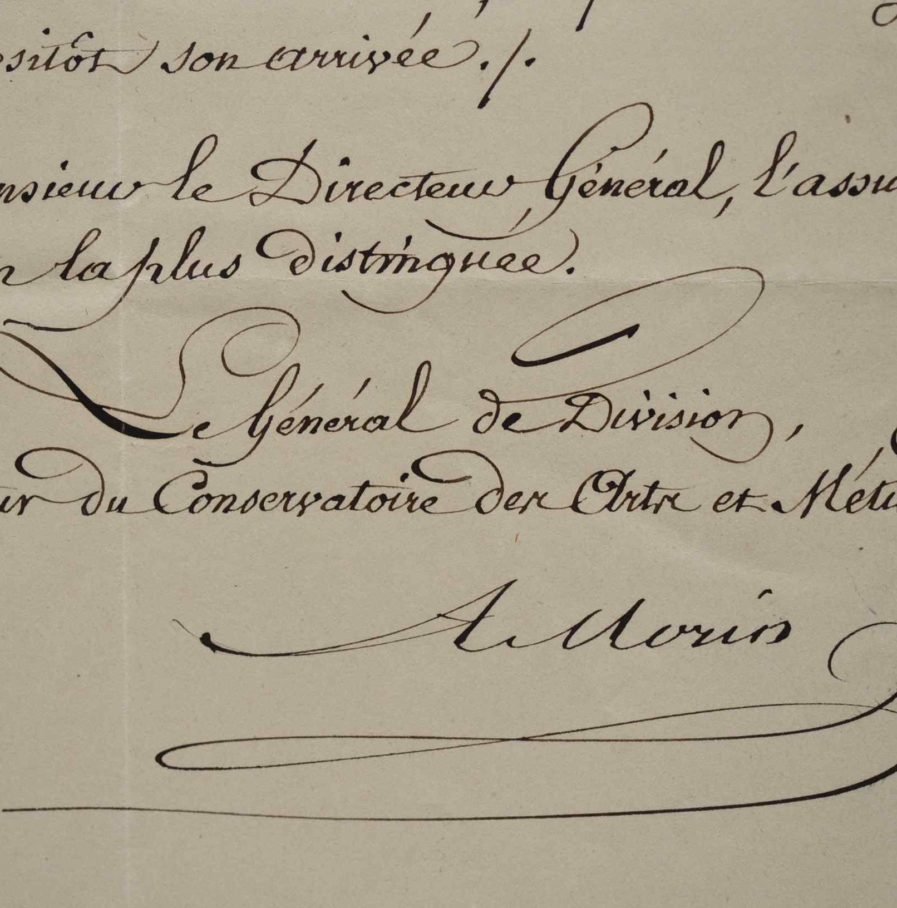 sitôt son arrivée ./.
nsieur le Directeur Général, l'assu
n la plus distinguée.
Le Général de Division,
ur du Conservatoire des Arts et Méti
A Morin